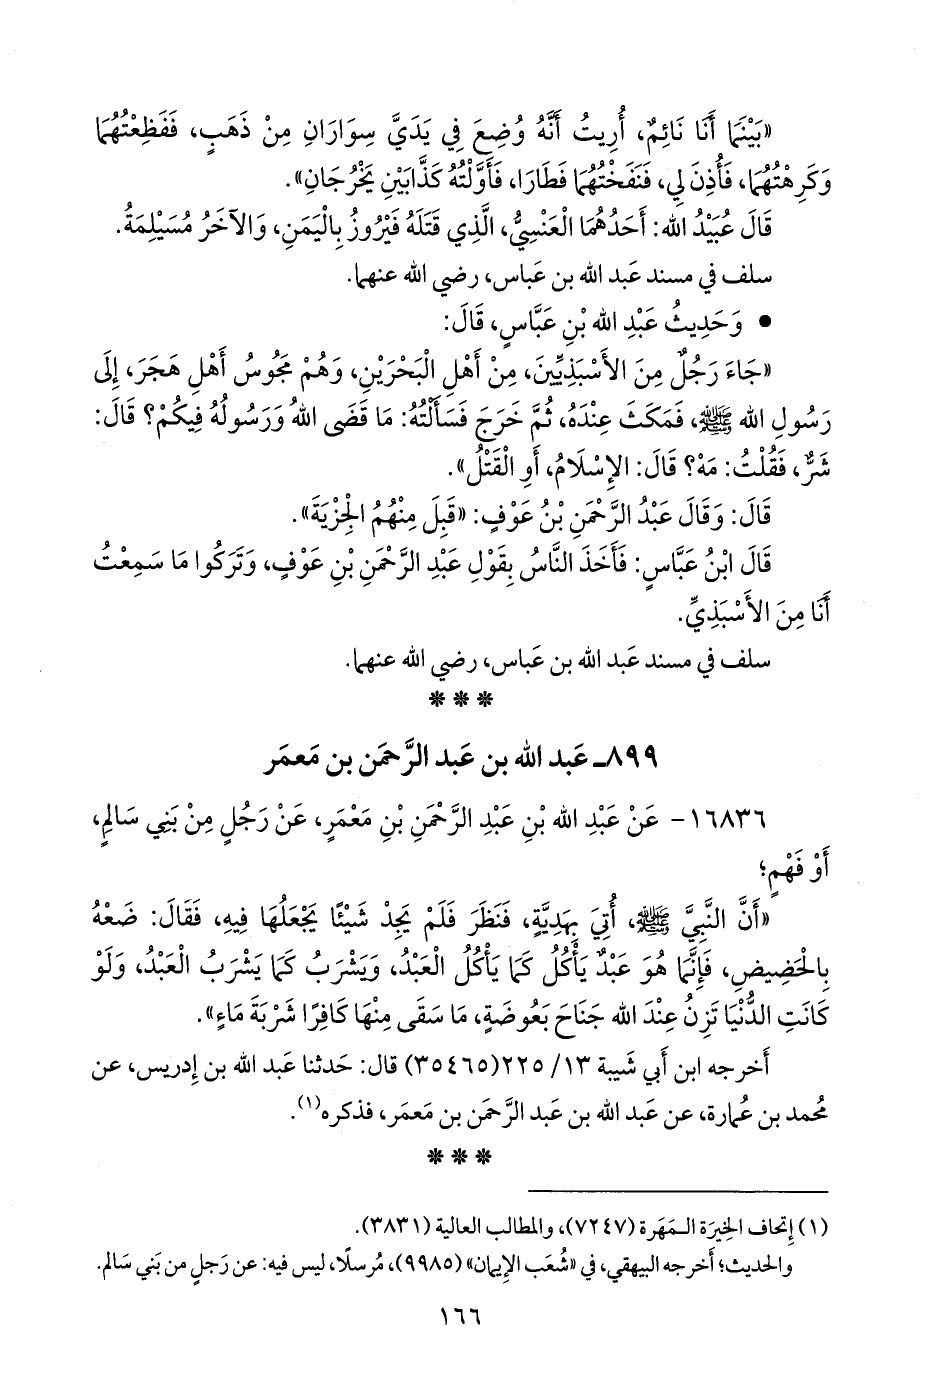 «بَيْنَمَا أَنَا نَائِمٌ، أُرِيتُ أَنَّهُ وُضِعَ فِي يَدَيَّ سِوَارَانِ مِنْ ذَهَبٍ، فَفَظِعْتُهُمَا
وَكَرِهْتُهُمَا، فَأُذِنَ لِي، فَنَفَخْتُهُمَا فَطَارَا، فَأَوَّلْتُهُ كَذَّابَيْنِ يَخْرُجَانِ».
قَالَ عُبَيْدُ الله: أَحَدُهُمَا الْعَنْسِيُّ، الَّذِي قَتَلَهُ فَيْرُوزُ بِالْيَمَنِ، وَالآخَرُ مُسَيْلِمَةُ.
سلف في مسند عَبد الله بن عَباس، رضي الله عنهما.
• وَحَدِيثُ عَبْدِ الله بْنِ عَبَّاسٍ، قَالَ:
«جَاءَ رَجُلٌ مِنَ الأَسْبَذِيِّينَ، مِنْ أَهْلِ الْبَحْرَيْنِ، وَهُمْ مَجُوسُ أَهْلِ هَجَرَ، إِلَى
رَسُولِ الله ﷺ، فَمَكَثَ عِنْدَهُ، ثُمَّ خَرَجَ فَسَأَلْتُهُ: مَا قَضَى اللهُ وَرَسُولُهُ فِيكُمْ؟ قَالَ:
شَرٌّ، فَقُلْتُ: مَهْ؟ قَالَ: الإِسْلَامُ، أَوِ الْقَتْلُ».
قَالَ: وَقَالَ عَبْدُ الرَّحْمَنِ بْنُ عَوْفٍ: «قَبِلَ مِنْهُمُ الْجِزْيَةَ».
قَالَ ابْنُ عَبَّاسٍ: فَأَخَذَ النَّاسُ بِقَوْلِ عَبْدِ الرَّحْمَنِ بْنِ عَوْفٍ، وَتَرَكُوا مَا سَمِعْتُ
أَنَا مِنَ الأَسْبَذِيِّ.
سلف في مسند عَبد الله بن عَباس، رضي الله عنهما.
***
٨٩٩ـ عَبد الله بن عَبد الرَّحمَن بن مَعمَر
١٦٨٣٦- عَنْ عَبْدِ الله بْنِ عَبْدِ الرَّحْمَنِ بْنِ مَعْمَرٍ، عَنْ رَجُلٍ مِنْ بَنِي سَالِمٍ،
أَوْ فَهْمٍ؛
«أَنَّ النَّبِيَّ ﷺ، أُتِيَ بِهَدِيَّةٍ، فَنَظَرَ فَلَمْ يَجِدْ شَيْئًا يَجْعَلُهَا فِيهِ، فَقَالَ: ضَعْهُ
بِالْحَضِيضِ، فَإِنَّمَا هُوَ عَبْدٌ يَأْكُلُ كَمَا يَأْكُلُ الْعَبْدُ، وَيَشْرَبُ كَمَا يَشْرَبُ الْعَبْدُ، وَلَوْ
كَانَتِ الدُّنْيَا تَزِنُ عِنْدَ الله جَنَاحَ بَعُوضَةٍ، مَا سَقَى مِنْهَا كَافِرًا شَرْبَةَ مَاءٍ».
أَخرجه ابن أَبي شَيبة ١٣/ ٢٢٥(٣٥٤٦٥) قال: حَدثنا عَبد الله بن إِدريس، عن
مُحمد بن عُمارة، عن عَبد الله بن عَبد الرَّحمَن بن مَعمَر، فذكره(١).
***
(١) إِتحاف الخِيرَة المَهَرة (٧٢٤٧)، والمطالب العالية (٣٨٣١).
والحديث؛ أَخرجه البيهقي، في «شُعَب الإِيمان» (٩٩٨٥)، مُرسلًا، ليس فيه: عن رَجلٍ من بَني سَالم.
١٦٦